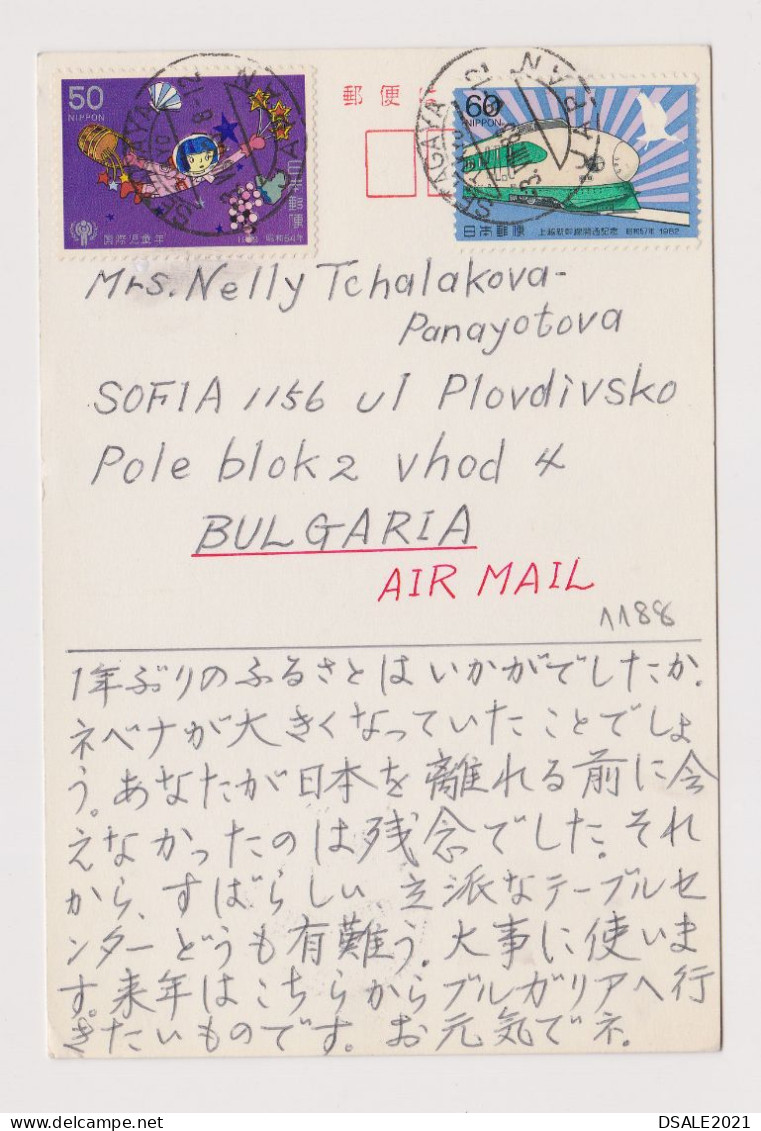 50
NIPPON
日本郵便
国際児童年
昭和54年
郵便
60
NIPPON
日本郵便 上越新幹線開通記念 昭和57年 1982
SETAGAYA
JAPAN
SETAGAYA
JAPAN
Mrs. Nelly Tchalakova-
Panayotova
SOFIA 1156 ul Plovdivsko
Pole blok 2 vhod 4
BULGARIA
AIR MAIL
1188
1年ぶりのふるさとはいかがでしたか.
ネベナが大きくなっていたことでしょ
う。あなたが日本を離れる前に会
えなかったのは残念でした。それ
から、すばらしい立派なテーブルセ
ンターどうも有難う.大事に使いま
す。来年はこちらからブルガリアへ行
きたいものです。お元気でネ.
DSALE2021